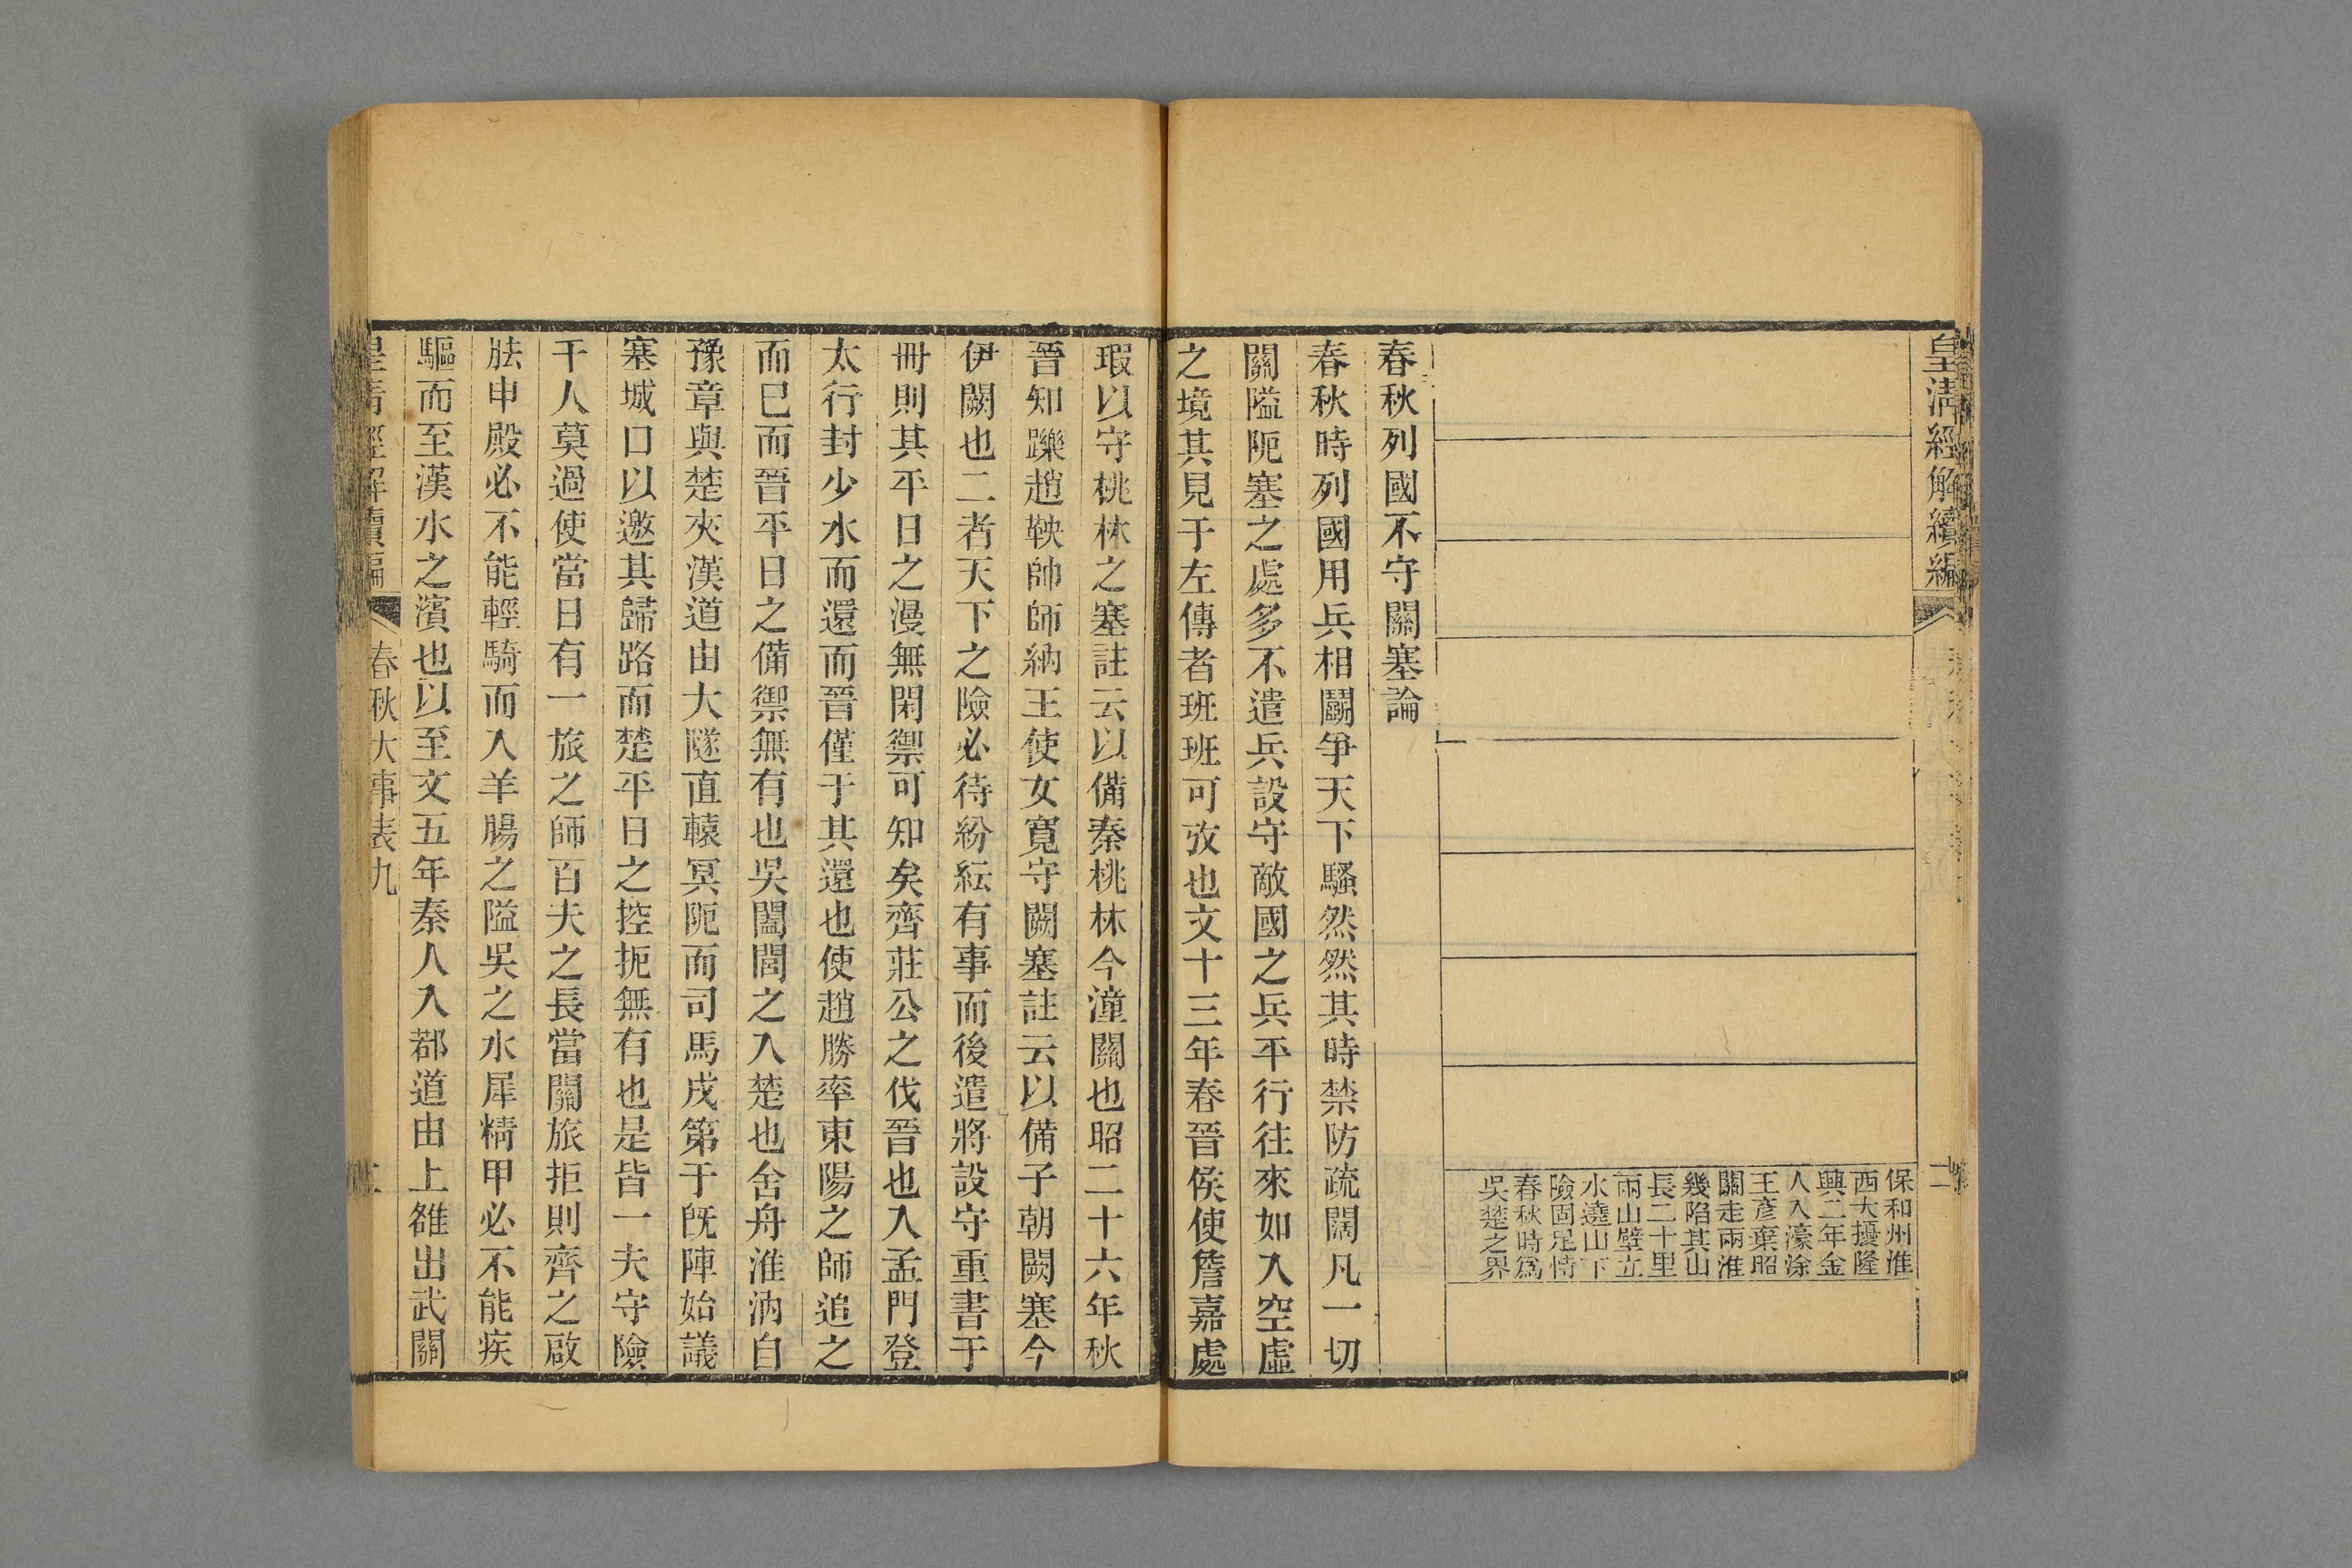 皇清經解續編
保和州淮
西大擾隆
興二年金
人入濠滁
王彥棄昭
關走兩淮
幾陷其山
長二十里
兩山壁立
水遶山下
險固足恃
春秋時爲
吳楚之界
春秋列國不守關塞論
春秋時列國用兵相鬭爭天下騷然然其時禁防疏闊凡一切
關隘阨塞之處多不遣兵設守敵國之兵平行往來如入空虛
之境其見于左傳者班班可攷也文十三年春晉侯使詹嘉處
瑕以守桃林之塞註云以備秦桃林今潼關也昭二十六年秋
晉知躒趙鞅帥師納王使女寬守闕塞註云以備子朝闕塞今
伊闕也二者天下之險必待紛紜有事而後遣將設守重書于
冊則其平日之漫無閑禦可知矣齊莊公之伐晉也入孟門登
太行封少水而還而晉僅于其還也使趙勝率東陽之師追之
而已而晉平日之備禦無有也吳闔閭之入楚也舍舟淮汭自
豫章與楚夾漢道由大隧直轅冥阨而司馬戌第于旣陣始議
塞城口以邀其歸路而楚平日之控扼無有也是皆一夫守險
千人莫過使當日有一旅之師百夫之長當關旅拒則齊之啟
胠申殿必不能輕騎而入羊腸之隘吳之水犀精甲必不能疾
驅而至漢水之濱也以至文五年秦人入鄀道由上雒出武關
皇清經解續編
春秋大事表九